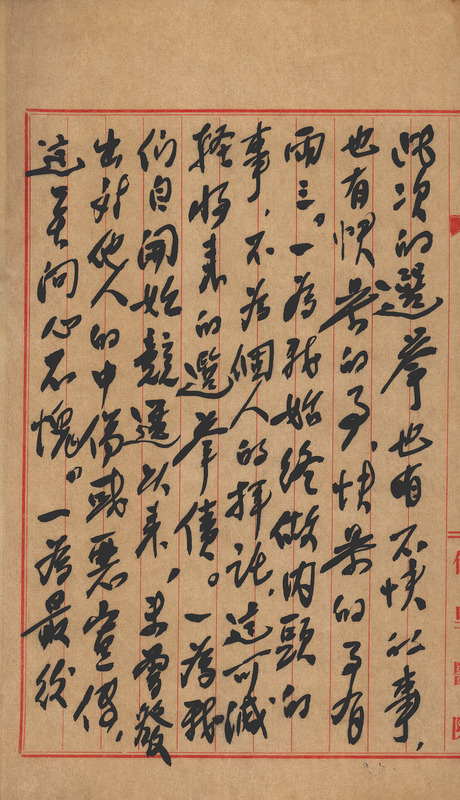 此次的選挙也有不快的事,
也有愉快的事,快樂的事有
兩三。一為我始終做內頭的
事,不為個人的拜託,這可減
輕將來的選挙債。一為我
們自開始競選以來,未曾發
出對他人的中傷或惡宣傳,
這是問心不愧。一為最後
醫院